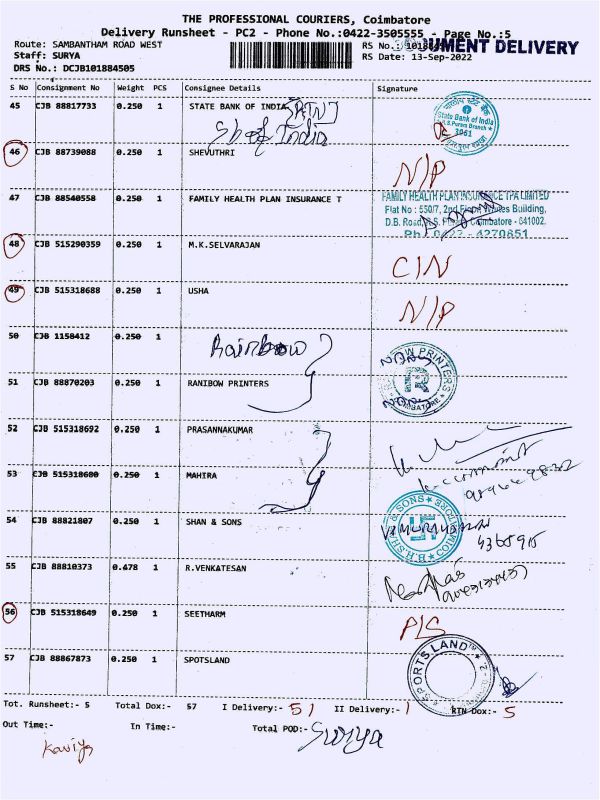 THE PROFESSIONAL COURIERS, Coimbatore
Delivery Runsheet - PC2 - Phone No.:0422-3505555 - Page No.:5
Route: SAMBANTHAM ROAD WEST RS No.: DOCUMENT DELIVERY
Staff: SURYA RS Date: 13-Sep-2022
DRS No.: DCJB101884505
S No Consignment No Weight PCS Consignee Details Signature
45 CJB 88817733 0.250 1 STATE BANK OF INDIA (RTN) State Bank of India
Sb of India R.S.Puram Branch 3961
46 CJB 88739088 0.250 1 SHEVUTHRI N/P
47 CJB 88540558 0.250 1 FAMILY HEALTH PLAN INSURANCE T FAMILY HEALTH PLAN INSURANCE TPA LIMITED
Flat No : 550/7, 2nd Floor, Building,
D.B. Road, R.S. Coimbatore - 641002.
Ph : 0422 - 4270651
48 CJB 515290359 0.250 1 M.K.SELVARAJAN C/N
49 CJB 515318688 0.250 1 USHA N/P
50 CJB 1158412 0.250 1
Rainbow
51 CJB 88870203 0.250 1 RANIBOW PRINTERS RAINBOW PRINTERS R COIMBATORE
52 CJB 515318692 0.250 1 PRASANNAKUMAR
53 CJB 515318680 0.250 1 MAHIRA
54 CJB 88821807 0.250 1 SHAN & SONS COIMBATORE
55 CJB 88810373 0.478 1 R.VENKATESAN
56 CJB 515318649 0.250 1 SEETHARM P/S
57 CJB 88867873 0.250 1 SPOTSLAND SPORTS LAND
Tot. Runsheet:- 5 Total Dox:- 57 I Delivery:- 51 II Delivery:- 1 RTN Dox:- 5
Out Time:- In Time:- Total POD:- Surya
Kaviya